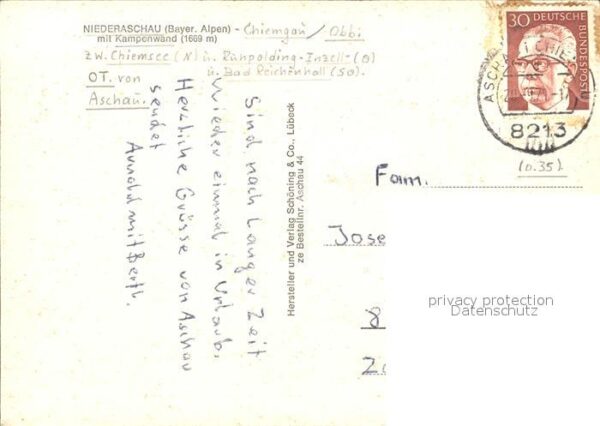 NIEDERASCHAU (Bayer. Alpen) - Chiemgau / Obb.
mit Kampenwand (1669 m)
zw. Chiemsee (N) u. Ruhpolding-Inzell-(O)
u. Bad Reichenhall (SO).
OT. von
Aschau.
Sind nach Langer Zeit
Wieder einmal in Urlaub.
Herzliche Grüsse von Aschau
sendet
Arnold mit Berth.
Hersteller und Verlag Schöning & Co., Lübeck
ze Bestellnr. Aschau 44
30 DEUTSCHE
BUNDESPOST
8213
(0.35)
Fam.
Jose
8
privacy protection
Datenschutz